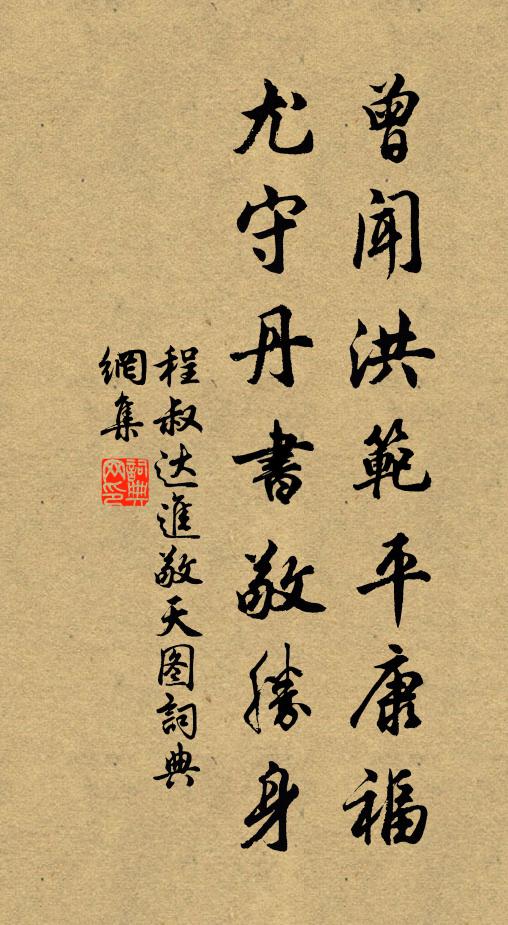 曾聞洪範平康福
尤守丹書敬勝身
程叔达進敬天图詞典
網集
詞典
网印